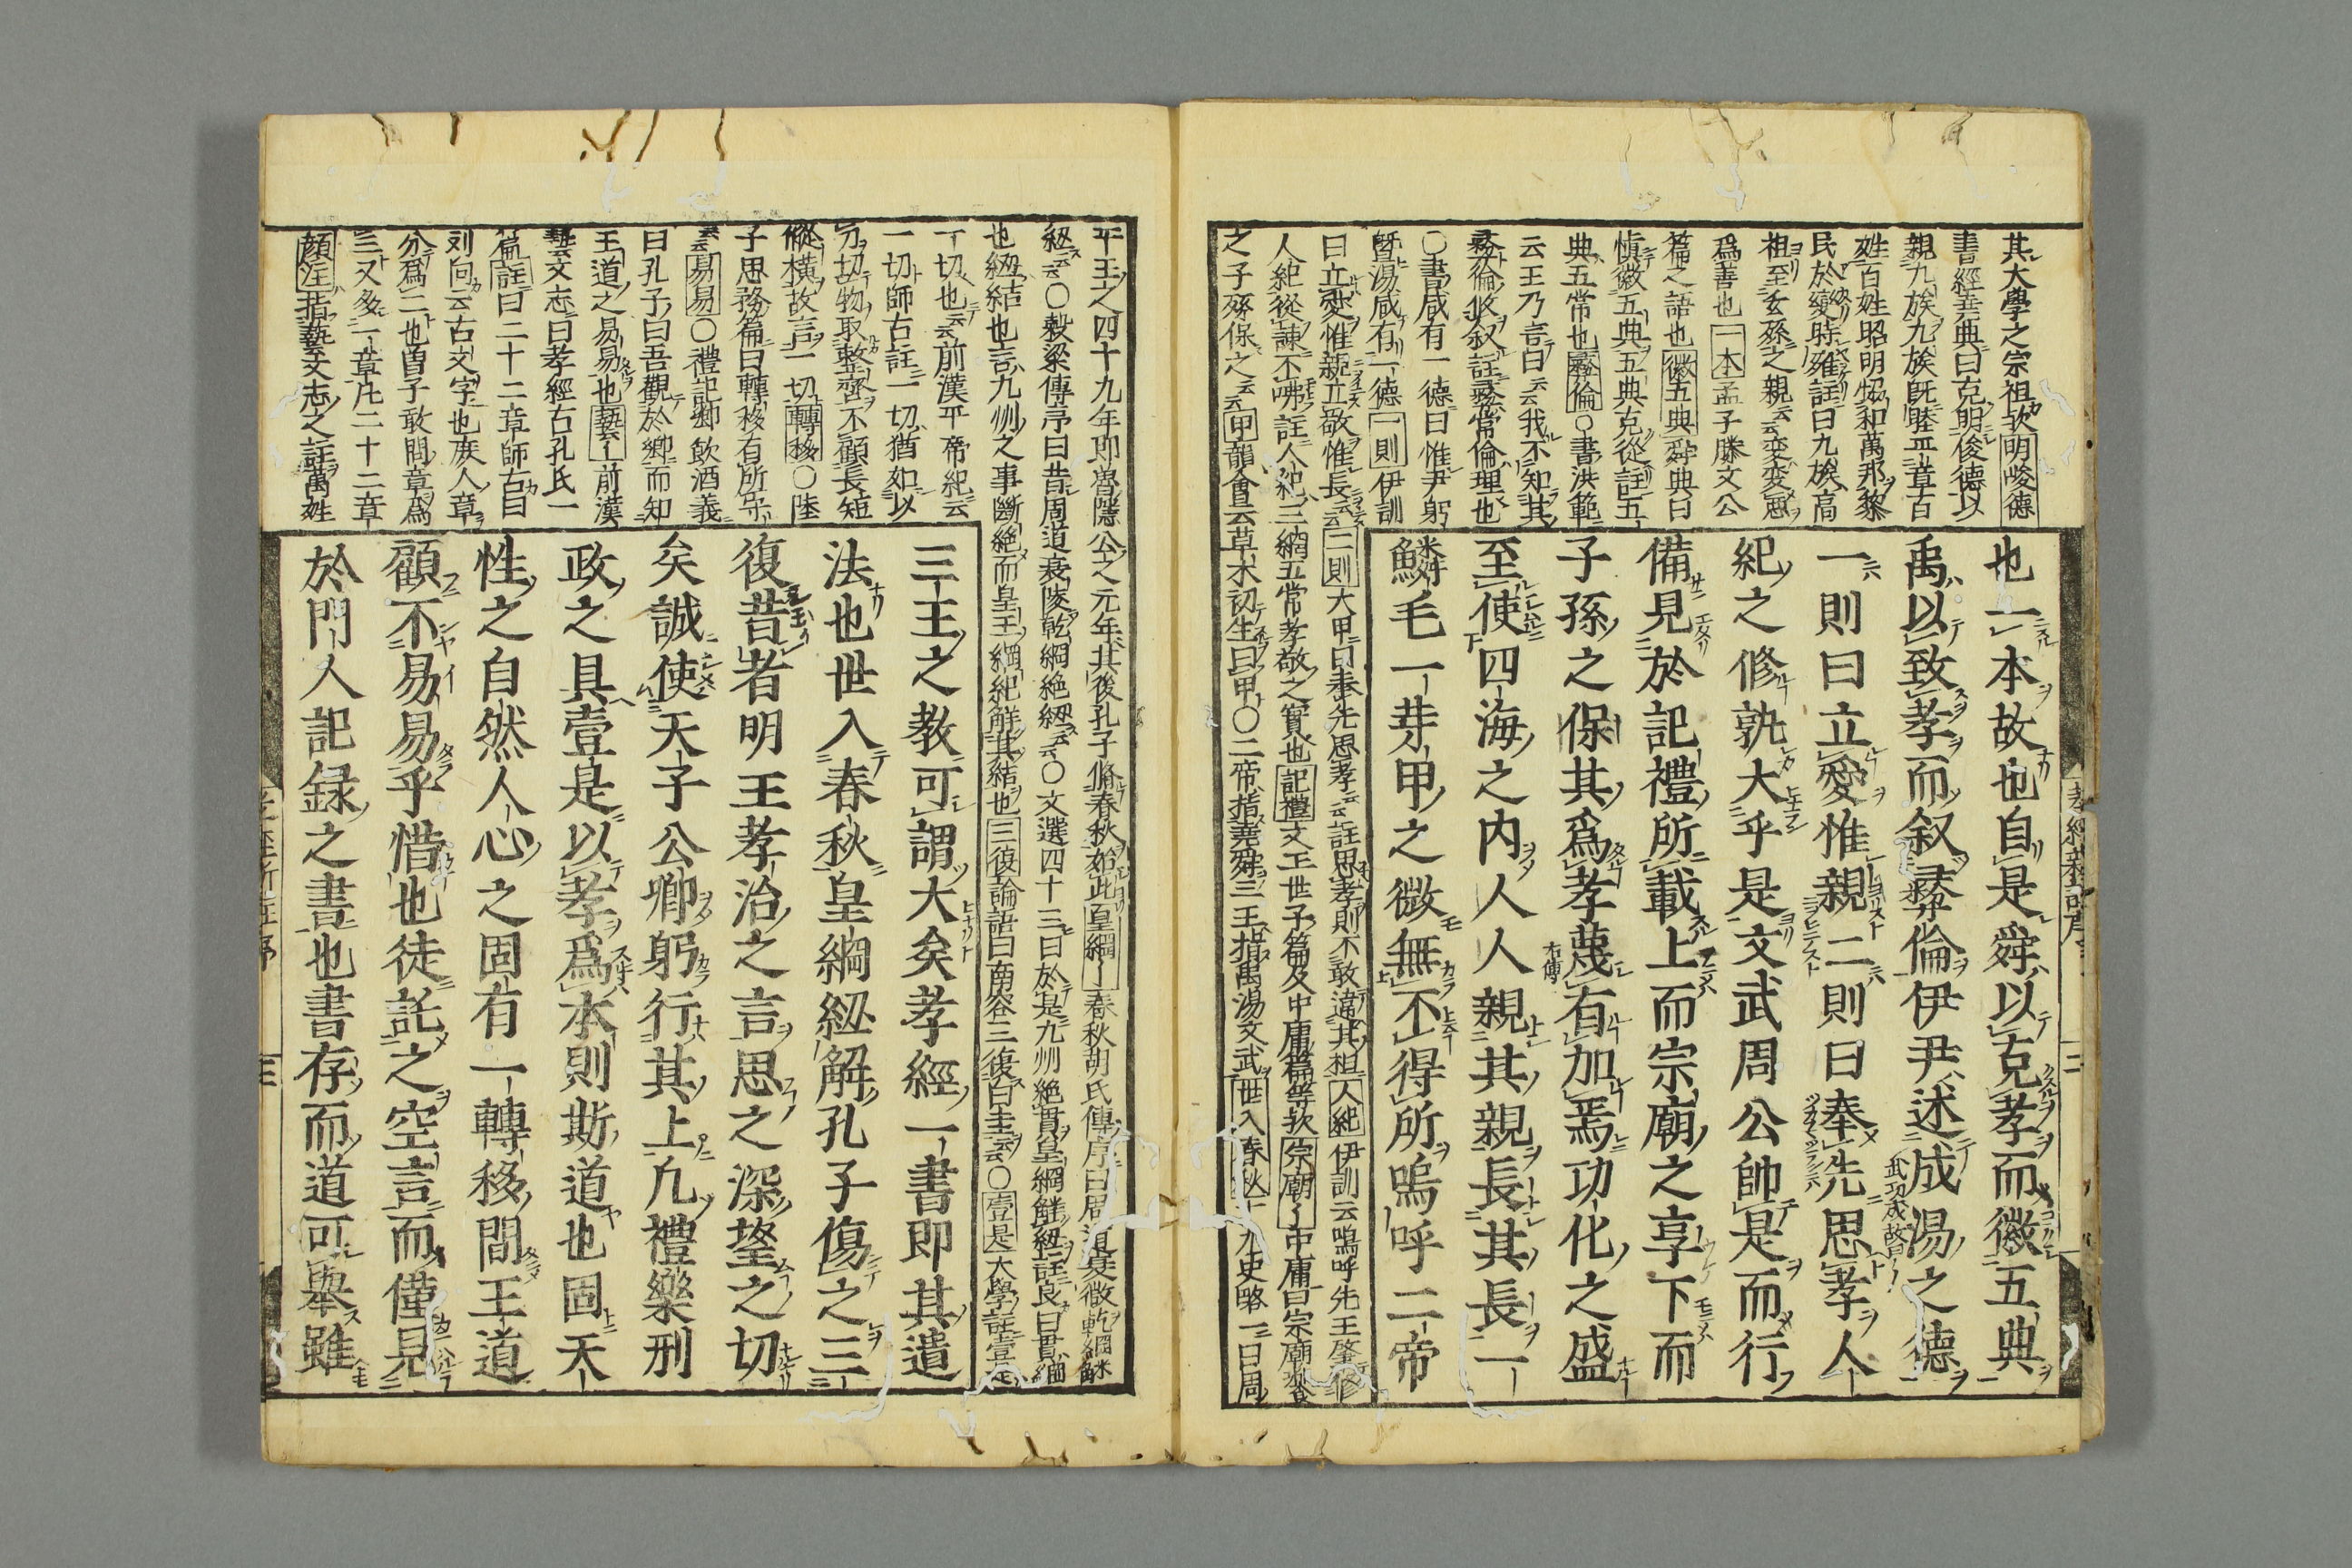 其大學之宗祖歟明峻德
書經堯典曰克明俊德以
親九族九族既睦平章百
姓百姓昭明恊和萬邦黎
民於變時雍註曰九族高
祖至玄孫之親云云
爲善也一本孟子滕文公
篇之語也徽五典舜典曰
愼徽五典五典克從註五
典五常也彝倫〇書洪範
云王乃言曰云云我不知其
彝倫攸叙註彝常倫理也
〇書咸有一德曰惟尹躬
曁湯咸有一德一則伊訓
曰立愛惟親立敬惟長云云二則大甲曰奉先思孝云云註思孝則不敢違其祖人紀伊訓云嗚呼先王肇修
人紀從諫不咈註人紀三綱五常孝敬之實也記禮文王世子篇及中庸篇等歟宗廟中庸曰宗廟饗
之子孫保之云云甲韻會云草木初生曰甲〇二帝指堯舜三王指禹湯文武世入春秋史略一曰周
也一本故也自是舜以克孝而徽五典
禹以致孝而叙彝倫伊尹述成湯之德
一則曰立愛惟親二則曰奉先思孝人
紀之修孰大乎是文武周公帥是而行
備見於記禮所載上而宗廟之享下而
子孫之保其爲孝蔑有加焉功化之盛
至使四海之内人人親其親長其長一
鱗毛一芽甲之微無不得所嗚呼二帝
孝經新註序
平王之四十九年即魯隱公之元年其後孔子脩春秋始此皇綱春秋胡氏傳序曰周道衰微乾綱解
紐云云〇穀梁傳序曰昔周道衰陵乾綱絶紐云云〇文選四十三曰於是九州絶貫皇綱解紐註良曰貫綱
也紐結也言九州之事斷絶而皇王綱紀解其結也三復論語曰南容三復白圭云云〇壹是大學註壹是
一切也云云前漢平帝紀云
一切師古註一切猶如以
刀切物取整齊不顧長短
縱橫故言一切轉移〇陸
子思務篇曰轉移有所守
云云易易〇禮記鄉飲酒義
曰孔子曰吾觀於鄉而知
王道之易易也藝前漢
藝文志曰孝經古孔氏一
篇註曰二十二章師古曰
劉向云古文字也庶人章
分爲二也曾子敢問章爲
三又多一章凡二十二章
顔注指藝文志之註萬姓
三王之教可謂大矣孝經一書即其遺
法也世入春秋皇綱紐解孔子傷之三
復昔者明王孝治之言思之深望之切
矣誠使天子公卿躬行其上凡禮樂刑
政之具壹是以孝爲本則斯道也固天
性之自然人心之固有一轉移間王道
顧不易易乎惜也徒託之空言而僅見
於門人記録之書也書存而道可舉雖